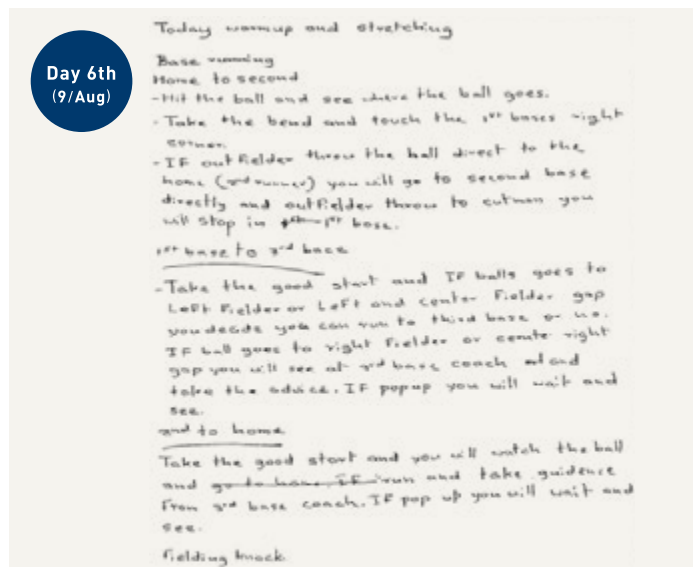 Day 6th
(9/Aug)
Today warmup and stretching
Base running
Home to second
-Hit the ball and see where the ball goes.
-Take the bend and touch the 1st bases right
corner.
-IF outfielder throw the ball direct to the
home (3rd runner) you will go to second base
directly and outfielder throw to cutman you
will stop in 1st base.
1st base to 3rd base
-Take the good start and IF balls goes to
Left Fielder or Left and center Fielder gap
you decide you can run to third base or no.
IF ball goes to right Fielder or cente right
gap you will see at 3rd base coach and
take the advice. IF popup you will wait and
see.
2nd to home
Take the good start and you will watch the ball
and go to home. IF run and take guidence
From 3rd base coach. IF pop up you will wait and
see.
Fielding knock